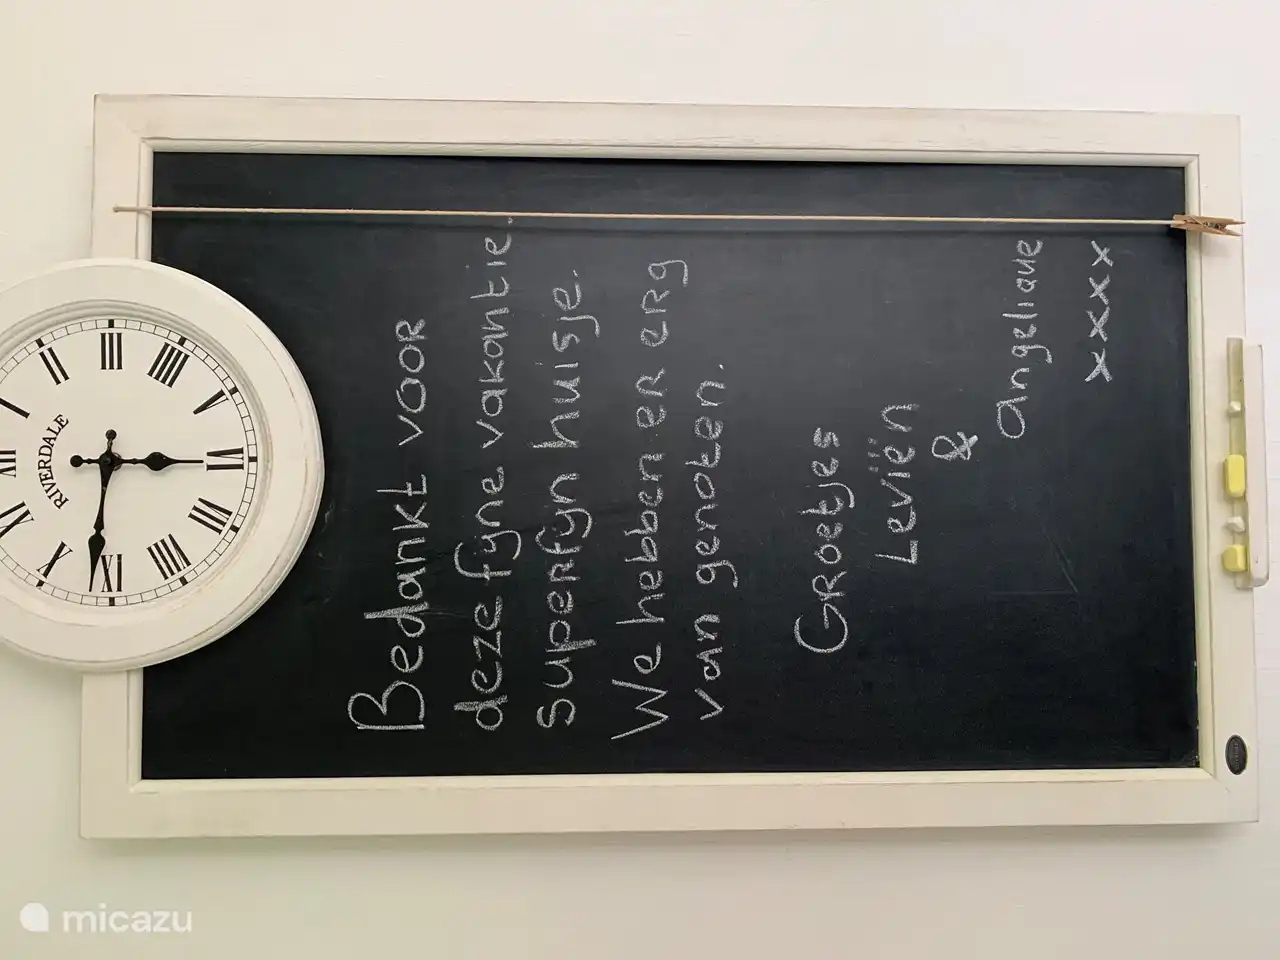 RIVERDALE
Bedankt voor
deze fijne vakantie.
Superfijn huisje.
We hebben er erg
van genoten.
Groetjes
Leviën
&
Angeliane
xxxx
XII
I
II
III
IIII
V
VI
VII
VIII
IX
X
XI
micazu